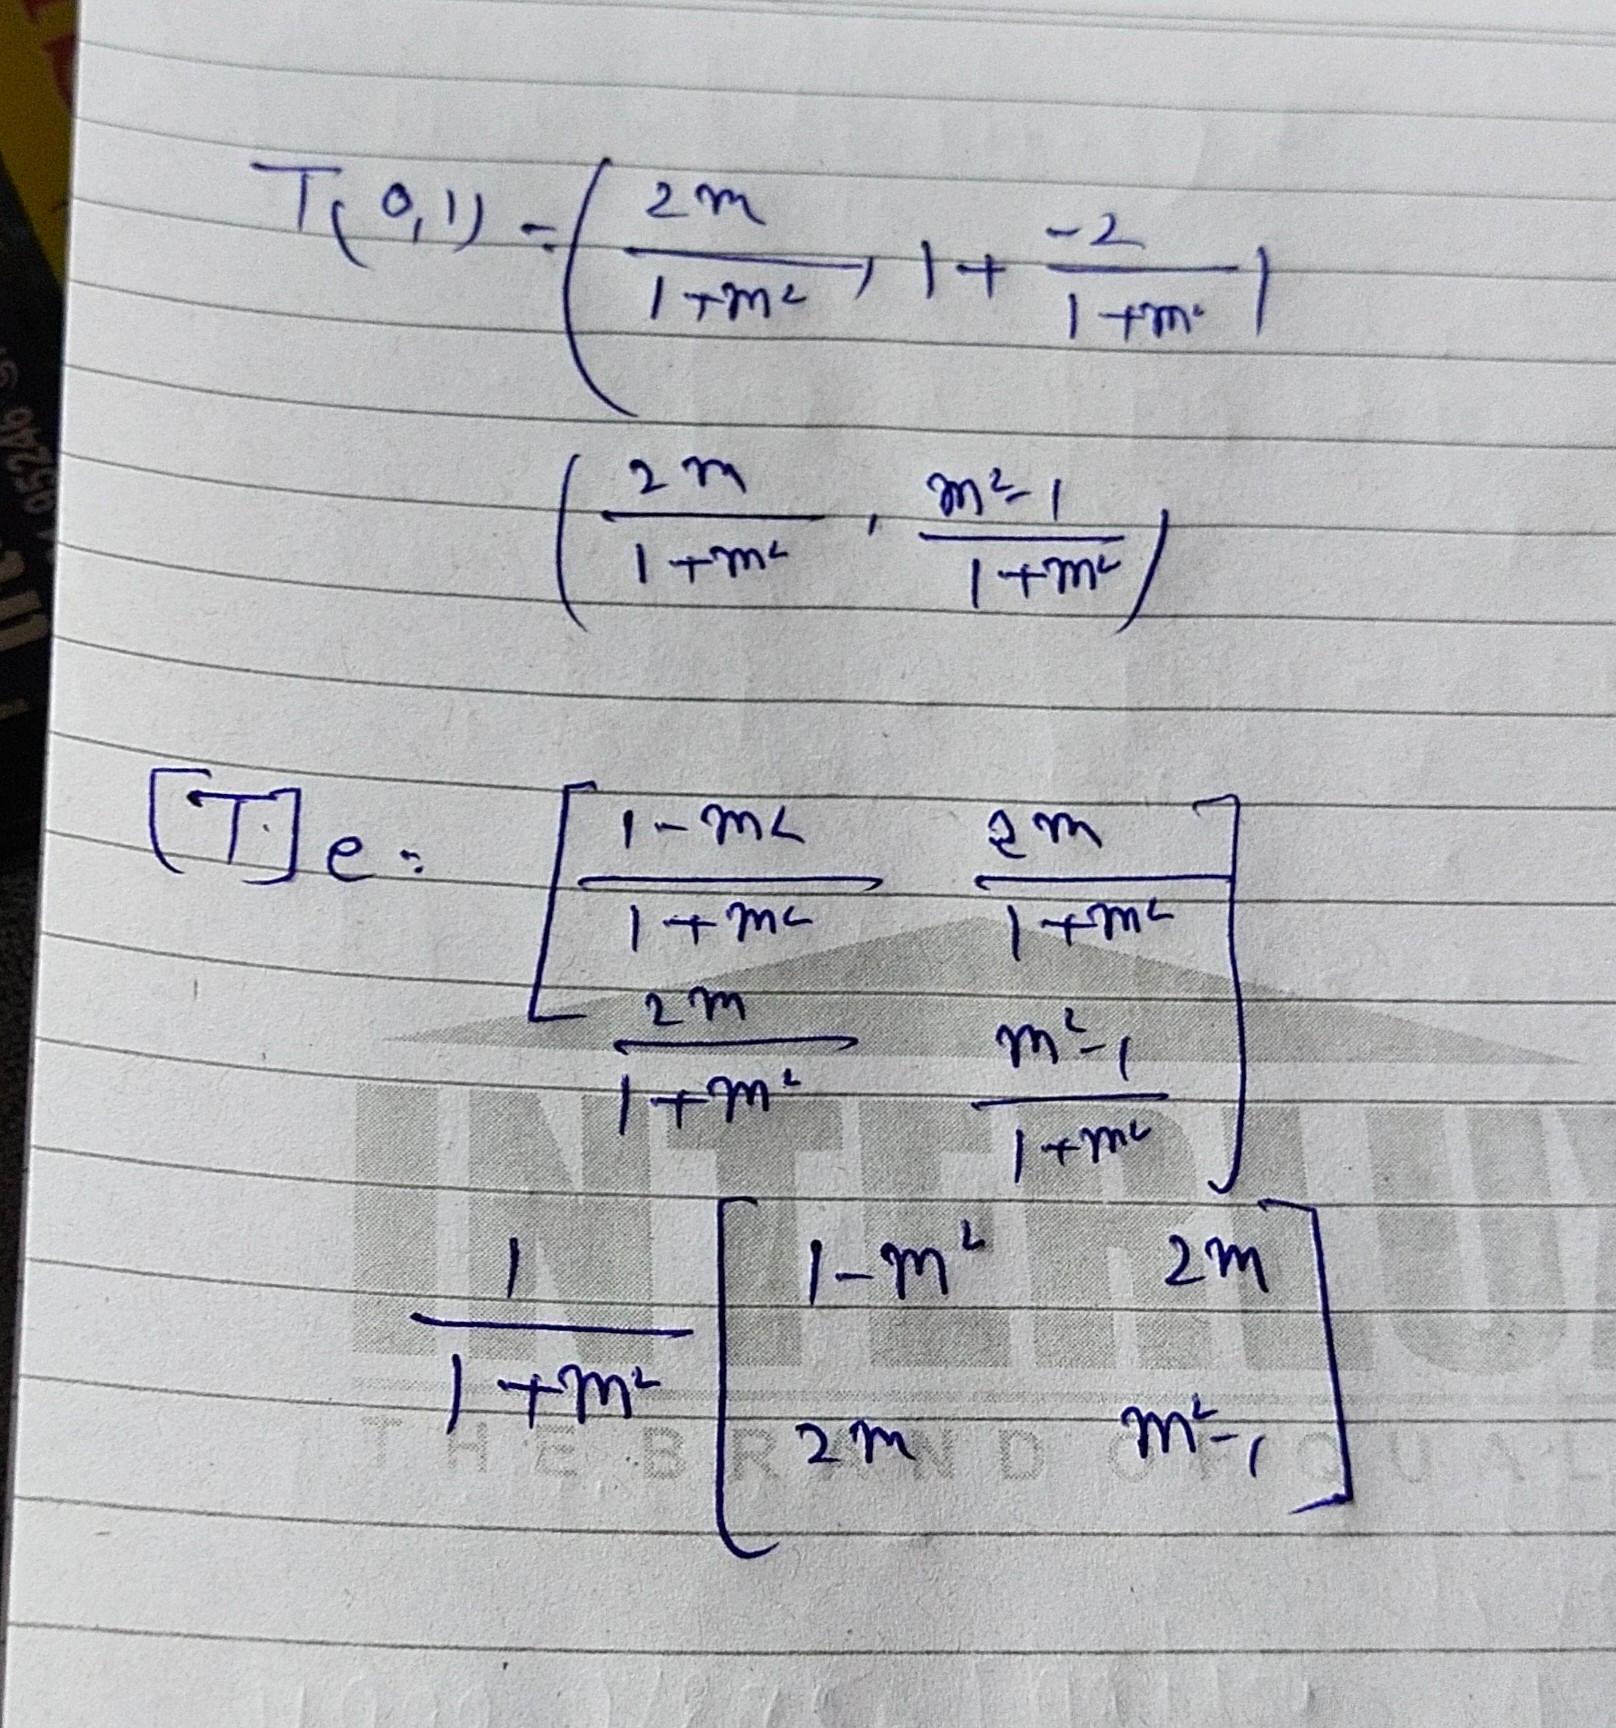 T(0,1) = ( 2m / 1+m² , 1 + -2 / 1+m² )
( 2m / 1+m² , m²-1 / 1+m² )
[T]e = [ 1-m² / 1+m²   2m / 1+m²
2m / 1+m²   m²-1 / 1+m² ]
1 / 1+m² [ 1-m²   2m
2m   m²-1 ]
THE BRAND OF QUAL